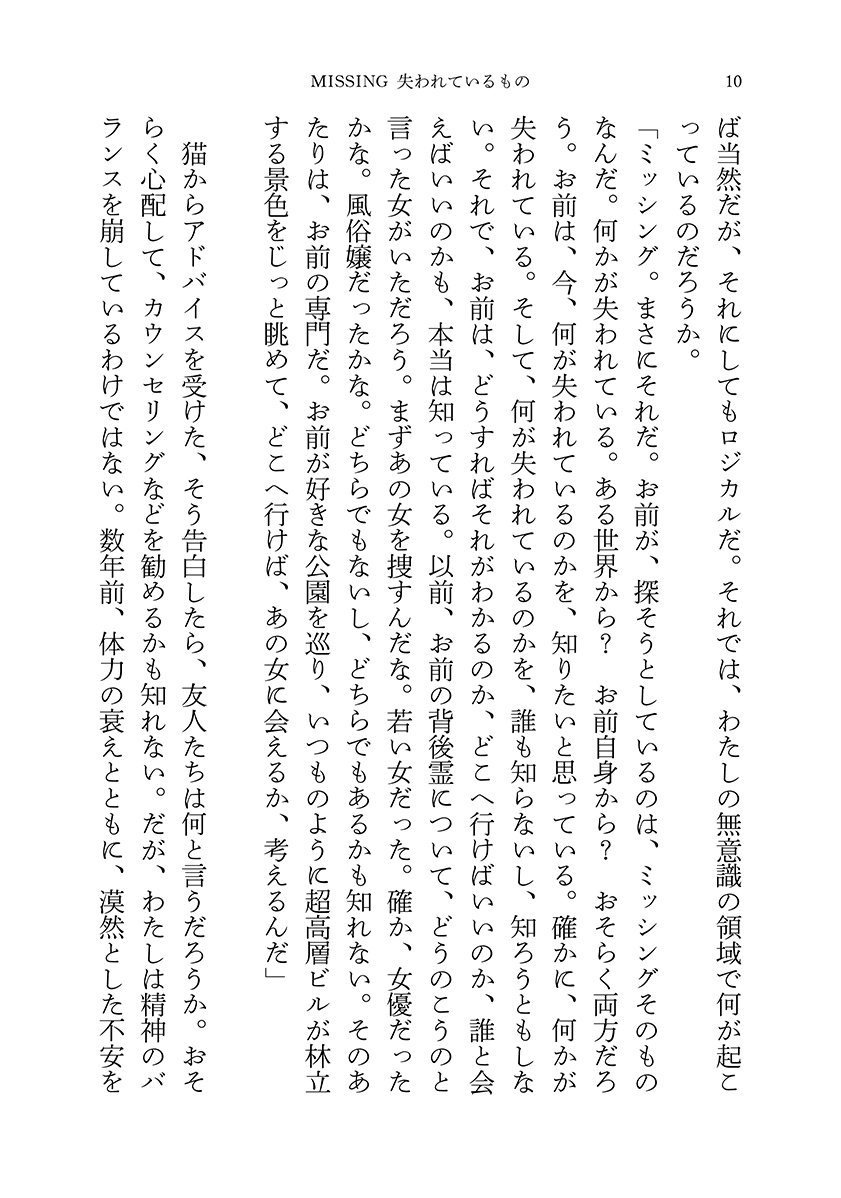 MISSING 失われているもの
10
ば当然だが、それにしてもロジカルだ。それでは、わたしの無意識の領域で何が起こ
っているのだろうか。
「ミッシング。まさにそれだ。お前が、探そうとしているのは、ミッシングそのもの
なんだ。何かが失われている。ある世界から?　お前自身から?　おそらく両方だろ
う。お前は、今、何が失われているのかを、知りたいと思っている。確かに、何かが
失われている。そして、何が失われているのかを、誰も知らないし、知ろうともしな
い。それで、お前は、どうすればそれがわかるのか、どこへ行けばいいのか、誰と会
えばいいのかも、本当は知っている。以前、お前の背後霊について、どうのこうのと
言った女がいただろう。まずあの女を捜すんだな。若い女だった。確か、女優だった
かな。風俗嬢だったかな。どちらでもないし、どちらでもあるかも知れない。そのあ
たりは、お前の専門だ。お前が好きな公園を巡り、いつものように超高層ビルが林立
する景色をじっと眺めて、どこへ行けば、あの女に会えるか、考えるんだ」
猫からアドバイスを受けた、そう告白したら、友人たちは何と言うだろうか。おそ
らく心配して、カウンセリングなどを勧めるかも知れない。だが、わたしは精神のバ
ランスを崩しているわけではない。数年前、体力の衰えとともに、漠然とした不安を